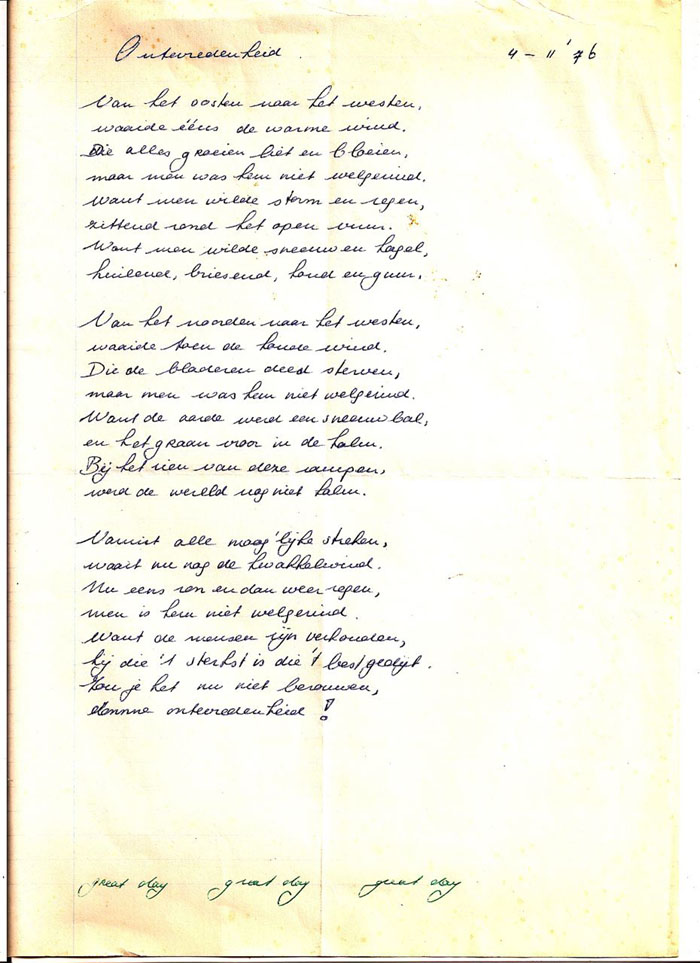 Ontevredenheid.
4 - 11 '76
Van het oosten naar het westen,
waaide ééns de warme wind.
Die alles groeien liet en bloeien,
maar men was hem niet welgezind.
Want men wilde storm en regen,
zittend rond het open vuur.
Want men wilde sneeuw en hagel,
huilend, briesend, koud en guur.
Van het noorden naar het westen,
waaide toen de koude wind.
Die de bladeren deed sterven,
maar men was hem niet welgezind.
Want de aarde werd een sneeuwbal,
en het graan vroor in de halm.
Bij het zien van deze rampen,
werd de wereld nog niet kalm.
Vanuit alle moog'lijke streken,
waait nu nog de kwakkelwind.
Nu eens zon en dan weer regen,
men is hem niet welgezind.
Want de mensen zijn verkouden,
hij die 't sterkst is die 't best gedijt.
Zou je het nu niet berouwen,
domme ontevredenheid!
great day great day great day